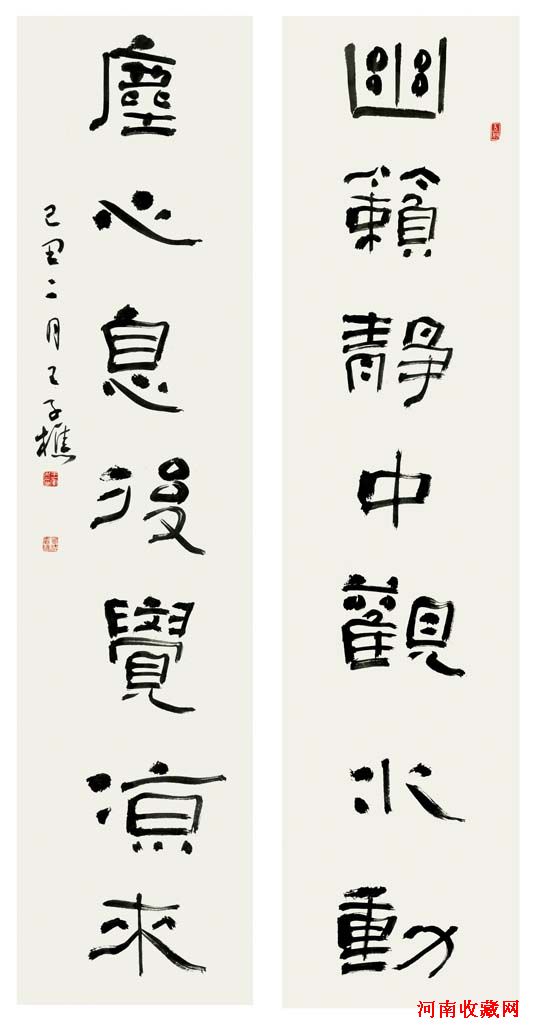 幽籟靜中觀水動
塵心息後覺涼來
己丑二月王子樵
河南收藏网